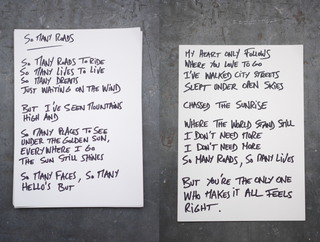 So Many Roads
So Many Roads to Ride
So Many Lives to Live
So Many Dreams
Just Waiting on the Wind
But I've Seen Mountains
High and
So Many Places to See
Under the Golden Sun,
Everywhere I Go
The Sun Still Shines
So Many Faces, So Many
Hello's But
My Heart Only Follows
Where You Love to Go
I've Walked City Streets
Slept Under Open Skies
Chassed the Sunrise
Where the World Stand Still
I Don't Need More
I Don't Need More
So Many Roads, So Many Lives
But You're the Only One
Who Makes It All Feels
Right.